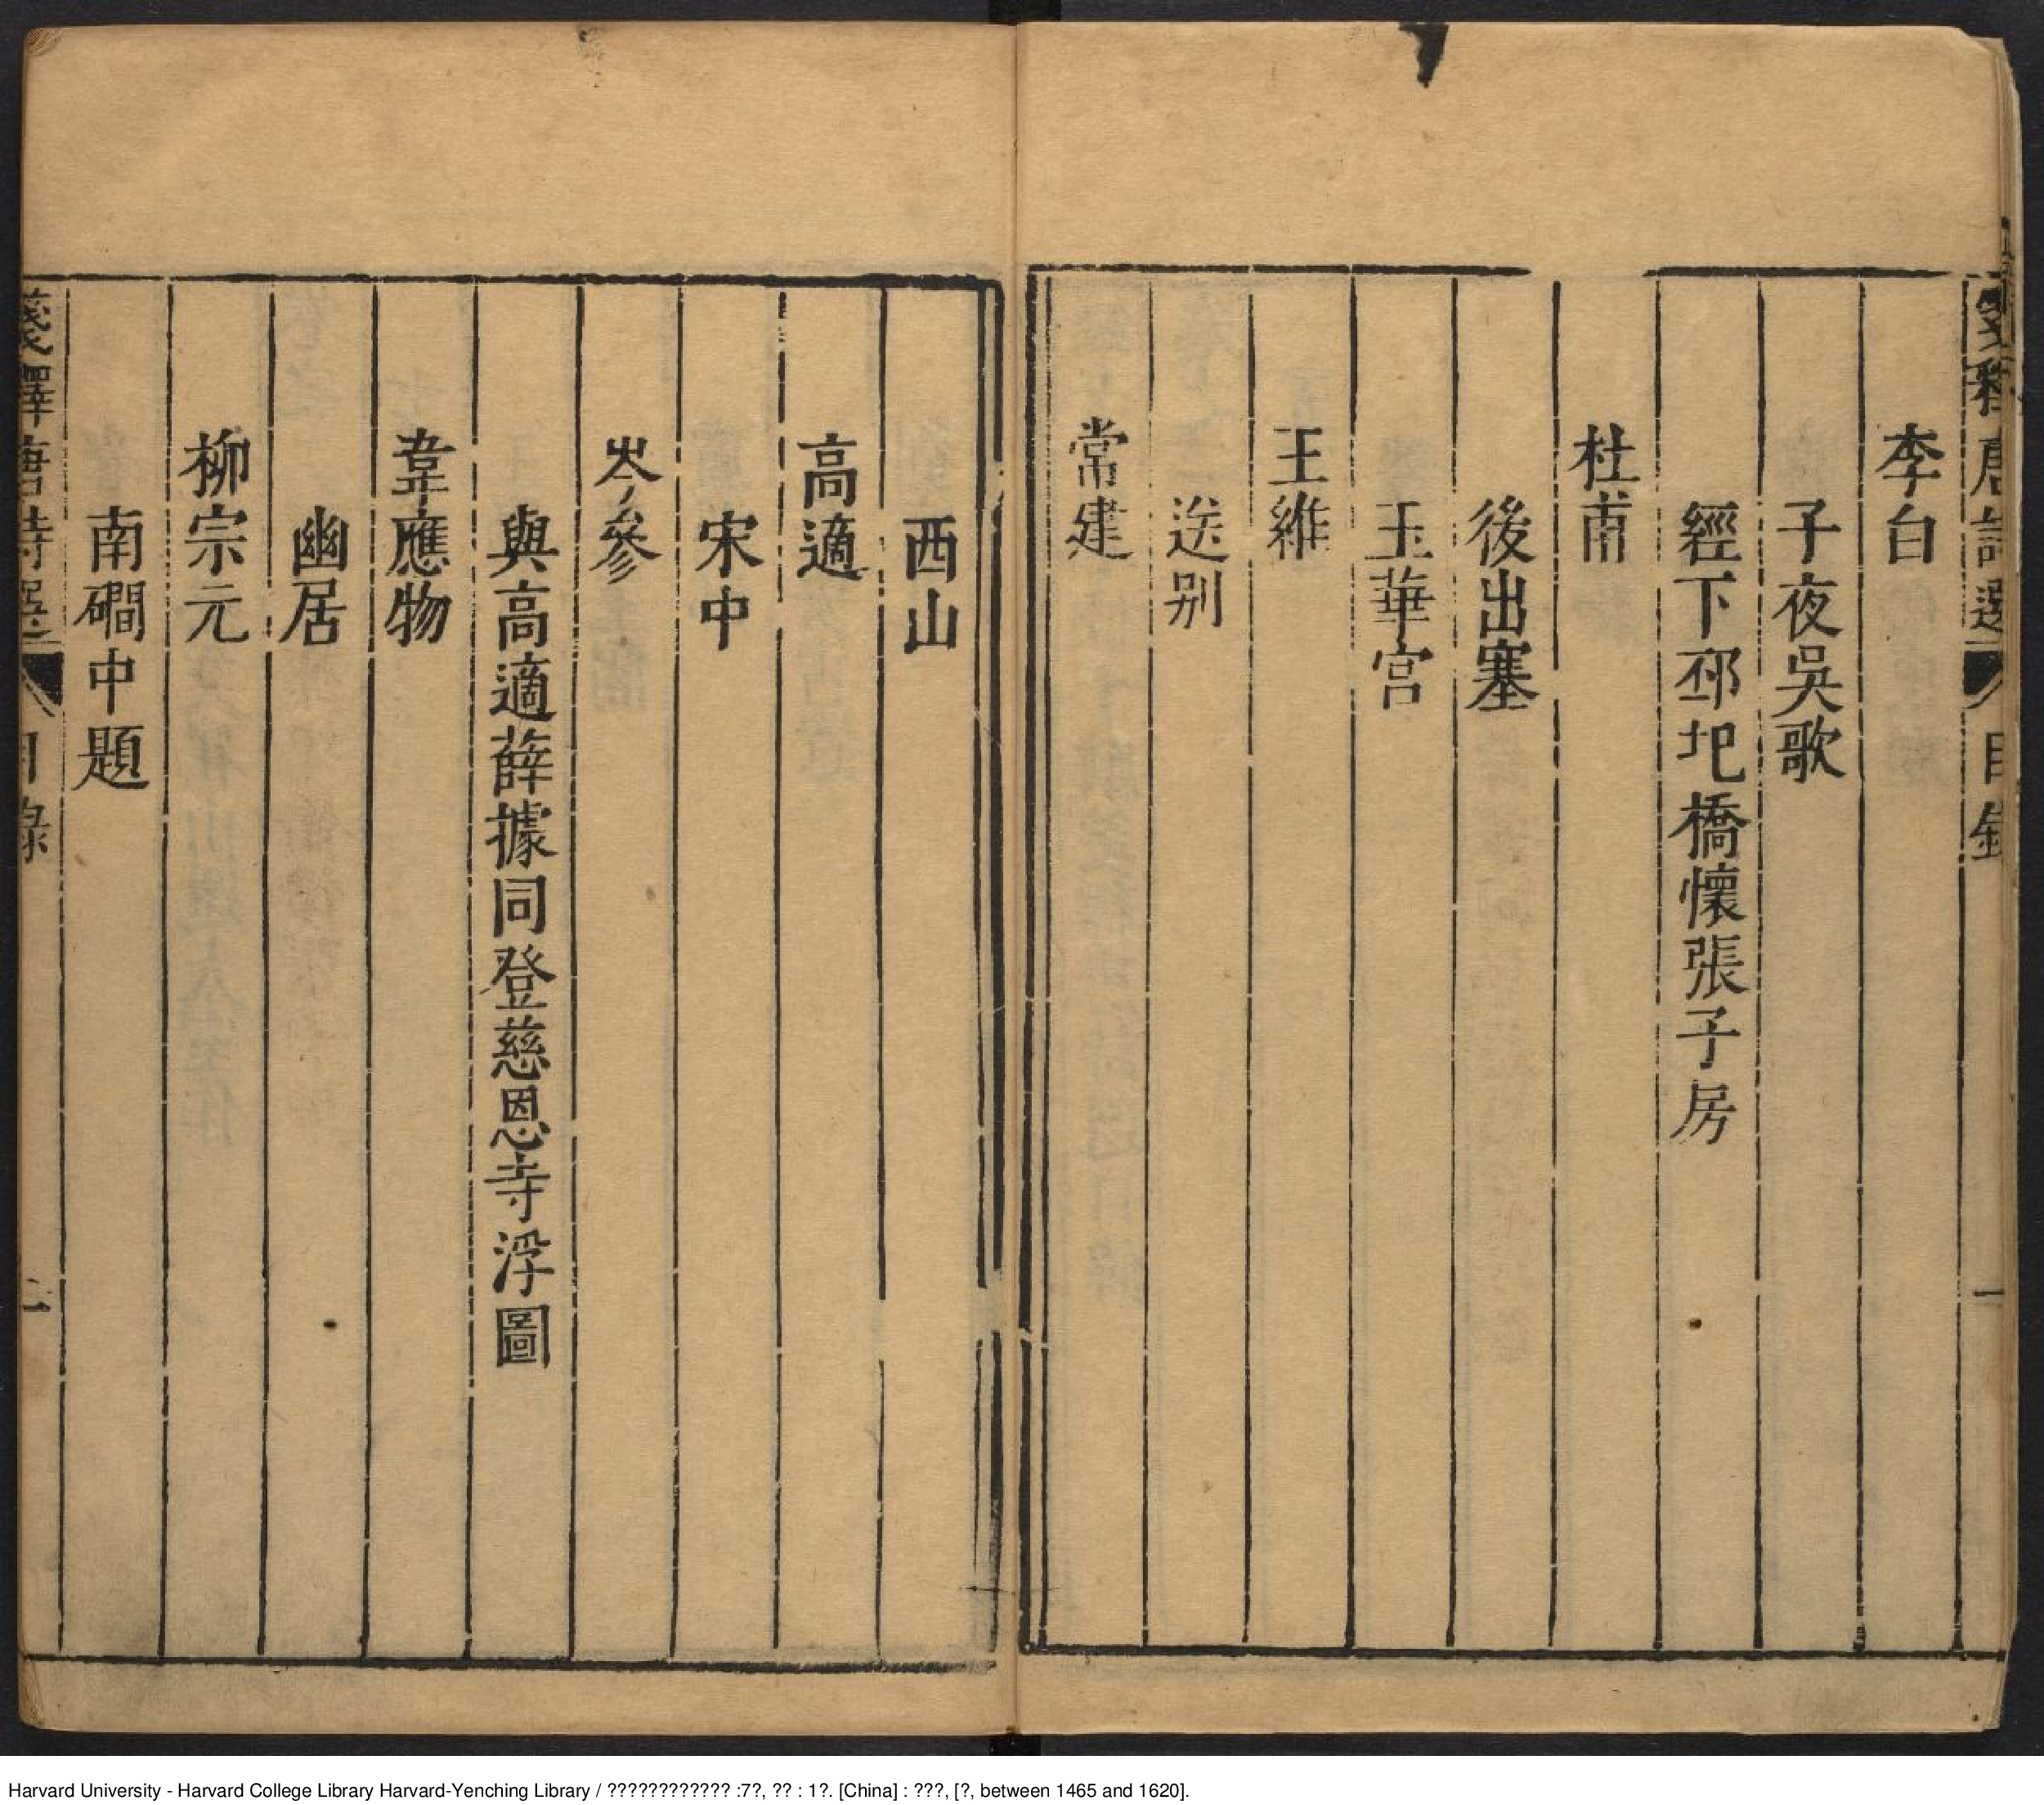 箋釋唐詩選 目録 一
李白
子夜吳歌
經下邳圯橋懷張子房
杜甫
後出塞
玉華宮
王維
送别
常建
西山
高適
宋中
岑參
與高適薛據同登慈恩寺浮圖
韋應物
幽居
柳宗元
南磵中題
箋釋唐詩選 目録 二
Harvard University - Harvard College Library Harvard-Yenching Library / ???????????? :7?, ?? : 1?. [China] : ???, [?, between 1465 and 1620].